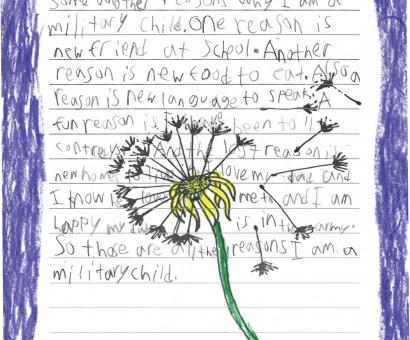 some another reasons why I am a
military child. One reason is
new friend at school. Another
reason is new food to eat. Also a
reason is new language to speak. A
fun reason is I have been to 11
contreys. And the last reason is
new home. love my dad and
I know he loves me to and I am
happy my dad is in the army.
So those are all the reasons I am a
military child.